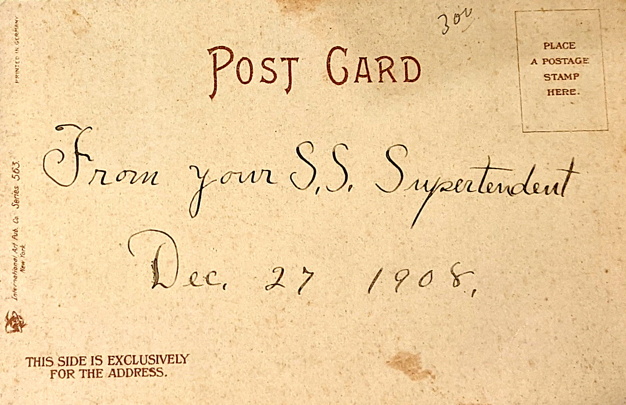 300
POST CARD
PLACE
A POSTAGE
STAMP
HERE.
PRINTED IN GERMANY
From your S.S. Supertendent
Dec. 27 1908.
International Art Pub. Co. Series 563.
New York.
THIS SIDE IS EXCLUSIVELY
FOR THE ADDRESS.